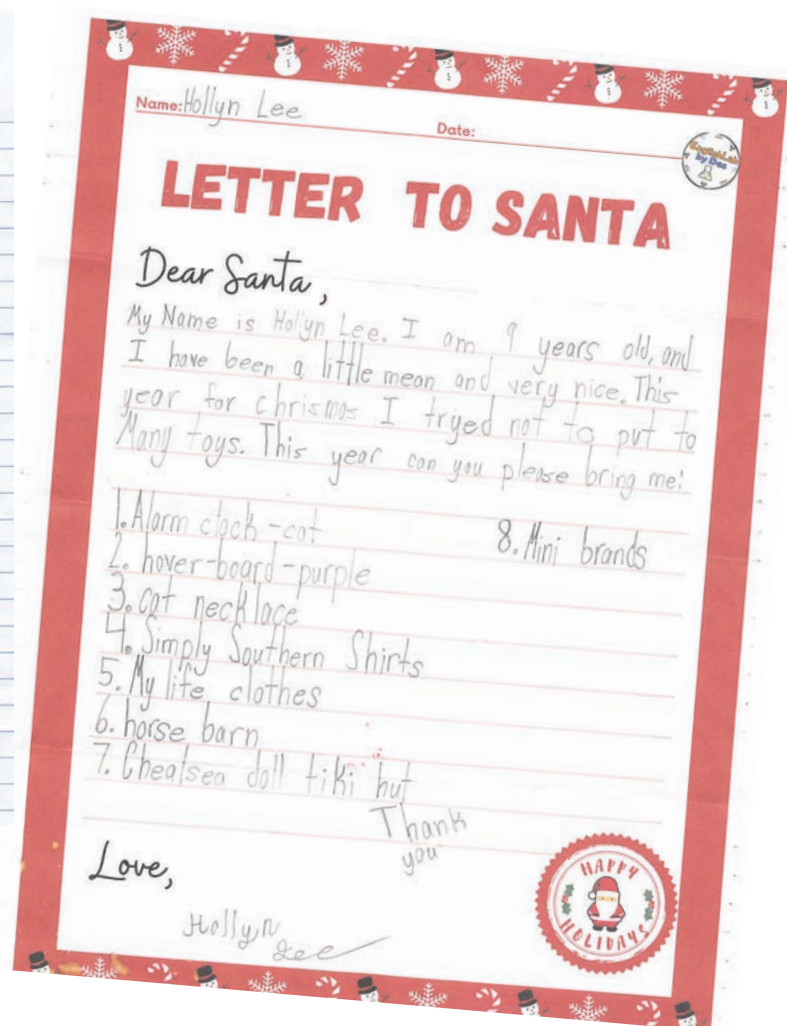 Name: Hollyn Lee
Date:
EnglishLab
by Dee
LETTER TO SANTA
Dear Santa,
My Name is Hollyn Lee. I am 9 years old, and
I have been a little mean and very nice. This
year for chrismas I tryed not to put to
Many toys. This year can you please bring me:
1. Alarm clock - cat
8. Mini brands
2. hover-board-purple
3. cat necklace
4. Simply Southern Shirts
5. My life clothes
6. horse barn
7. Chealsea doll tiki hut
Thank
you
Love,
Hollyn
Lee
HAPPY
HOLIDAYS